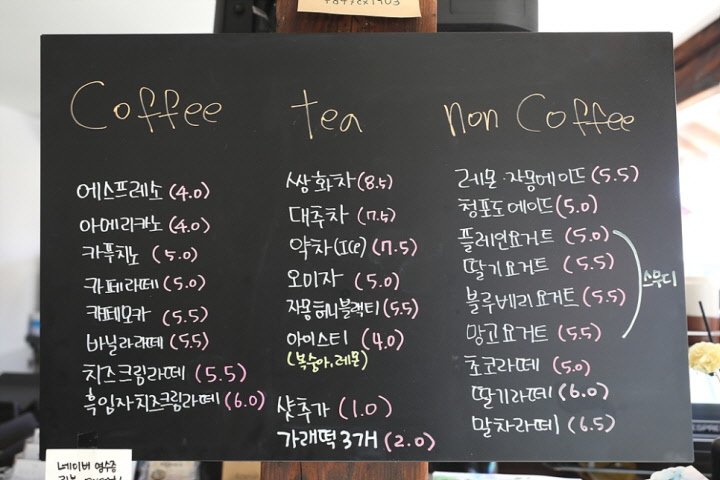 Coffee
에스프레소 (4.0)
아메리카노 (4.0)
카푸치노 (5.0)
카페라떼 (5.0)
캬페모카 (5.5)
바닐라라떼 (5.5)
치즈크림라떼 (5.5)
흑임자치즈크림라떼 (6.0)
tea
쌍화차 (8.5)
대추차 (7.5)
약차 (ICE) (7.5)
오미자 (5.0)
자몽허니블랙티 (5.5)
아이스티 (4.0)
(복숭아, 레몬)
샷추가 (1.0)
가래떡 3개 (2.0)
non Coffee
레몬·자몽에이드 (5.5)
청포도에이드 (5.0)
플레인요거트 (5.0)
딸기요거트 (5.5)
블루베리요거트 (5.5)
망고요거트 (5.5)
스무디
초코라떼 (5.0)
딸기라떼 (6.0)
말차라떼 (6.5)
네이버 영수증